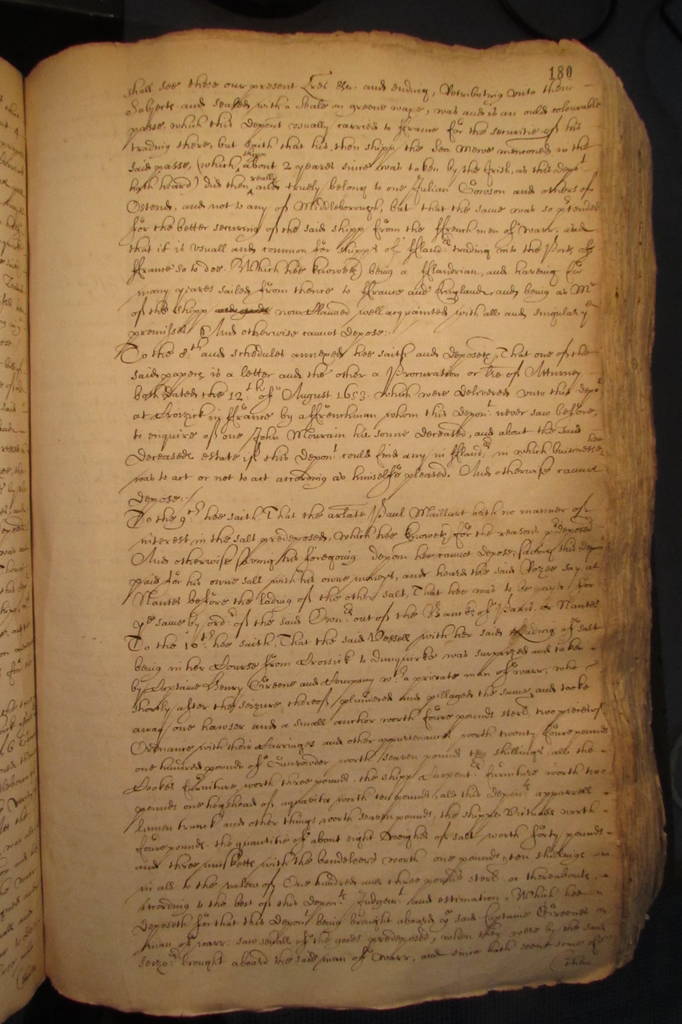 180
shall see these our present Lres &c: and ending, Attributing unto them
Subjects and sealed with a Seale on greene waxe, was and is an ould colourable
passe, which this deponent usually carried to ffrance for the securitie of his
trading there, but saith that his then shipp the Sea Mewe mentioned in the
said passe, (which about 2 yeares since was taken by the Irish, as this depot
hath heard) did then really and truely belong to one Julian and others of
Ostend, and not to any of Middleborough, but that the same was so ptended
for the better securing of the said shipp from the ffrench men of warr, and
that it is usuall and common for shipps of ffland: trading into the Ports of
ffrance so to doe. Which hee knoweth being a fflandrian, and having for
many yeares sailed from thence to ffrance and England, and being as Mr
of the shipp now Claimed well acquainted with all and singular ye
premisses And otherwise cannot depose.
To the 8th and schedules annexed hee saith and deposeth, That one of the
said papers is a letter and the other a Procuration or lre of Atturney
both dated the 12th of August 1653. which were delivered unto this depot
at Croizick in ffrance by a ffrenchman whom this depont never saw before,
to enquire of one John Mourain his sonne deceased, and about the said
deceaseds estate if this depont could find any in ffland, in which businesse hee
was to act or not to act according as himselfe pleased. And otherwise cannot
depose./
To the 9th hee saith That the arlate Paul Maillart hath no manner of
interest in the salt predeposed, which hee knoweth for the reasons pdeposed
And otherwise saving his foregoing depon hee cannot depose, saving this depont
paid for his owne salt with his owne moneys, and heard the said say at
Nantes before the lading of the other salt, That hee was to pay for
ye same by ordr of the said Ownrs out of the of or Nantes
To the 10th hee saith, That the said Vessell with her said lading of salt
being in her Course from Croisick to dunquirke was surprized and taken
by Captaine Henry Greene and Company wth a private man of warr, who
shortly after the seizure thereof plundered and pillaged the same, and tooke
away one hawser and a small anchor worth foure pounds sterl, two peeces of
Ordnance with their Carriages and other appurtenances worth twenty foure pounds
one hundred pounds of Gunpowder worth seaven pounds ten shillings, all the
Cookes furniture worth three pounds, the shipps furniture worth two
pounds one hogshead of aquavitae worth ten pounds, all this deponts apparrell
linnen trunck and other things worth seaven pounds, the shipps Victualls worth
foure pounds, the quantitie of about eight Weighes of salt worth forty pounds
and three musketts with the bandeleers worth one pounds, ten shillings
in all to the valew of One hundred and three pounds sterl or thereabouts,
according to the best of this deponts Judgemt and estimation. Which hee
deposeth for that this depont being brought aboard ye said Captaine Greenes
man of warr saw severall of the goods predeposed, when they were by the said
seizrs brought aboard the said man of warr, and since hath seene some of
them